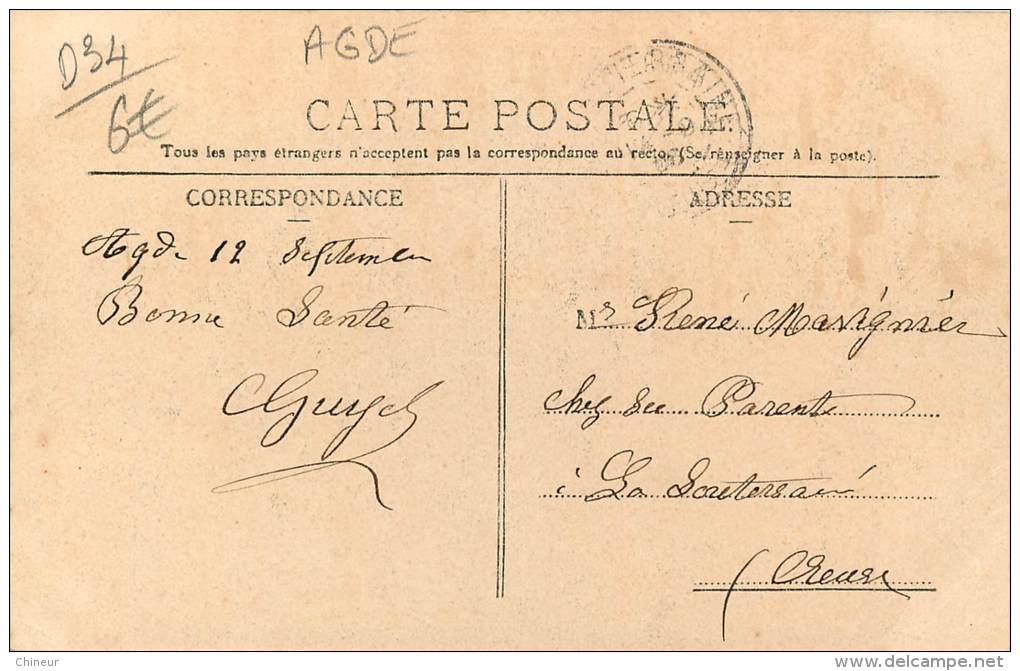 D34
6€
AGDE
CARTE POSTALE
Tous les pays étrangers n'acceptent pas la correspondance au recto. (Se renseigner à la poste).
CORRESPONDANCE
ADRESSE
Agde 12 Septembre
Bonne Santé
Mr René Mavignier
chez ses Parents
à La Souterraine
(Creuse
Chineur
delcampe.net